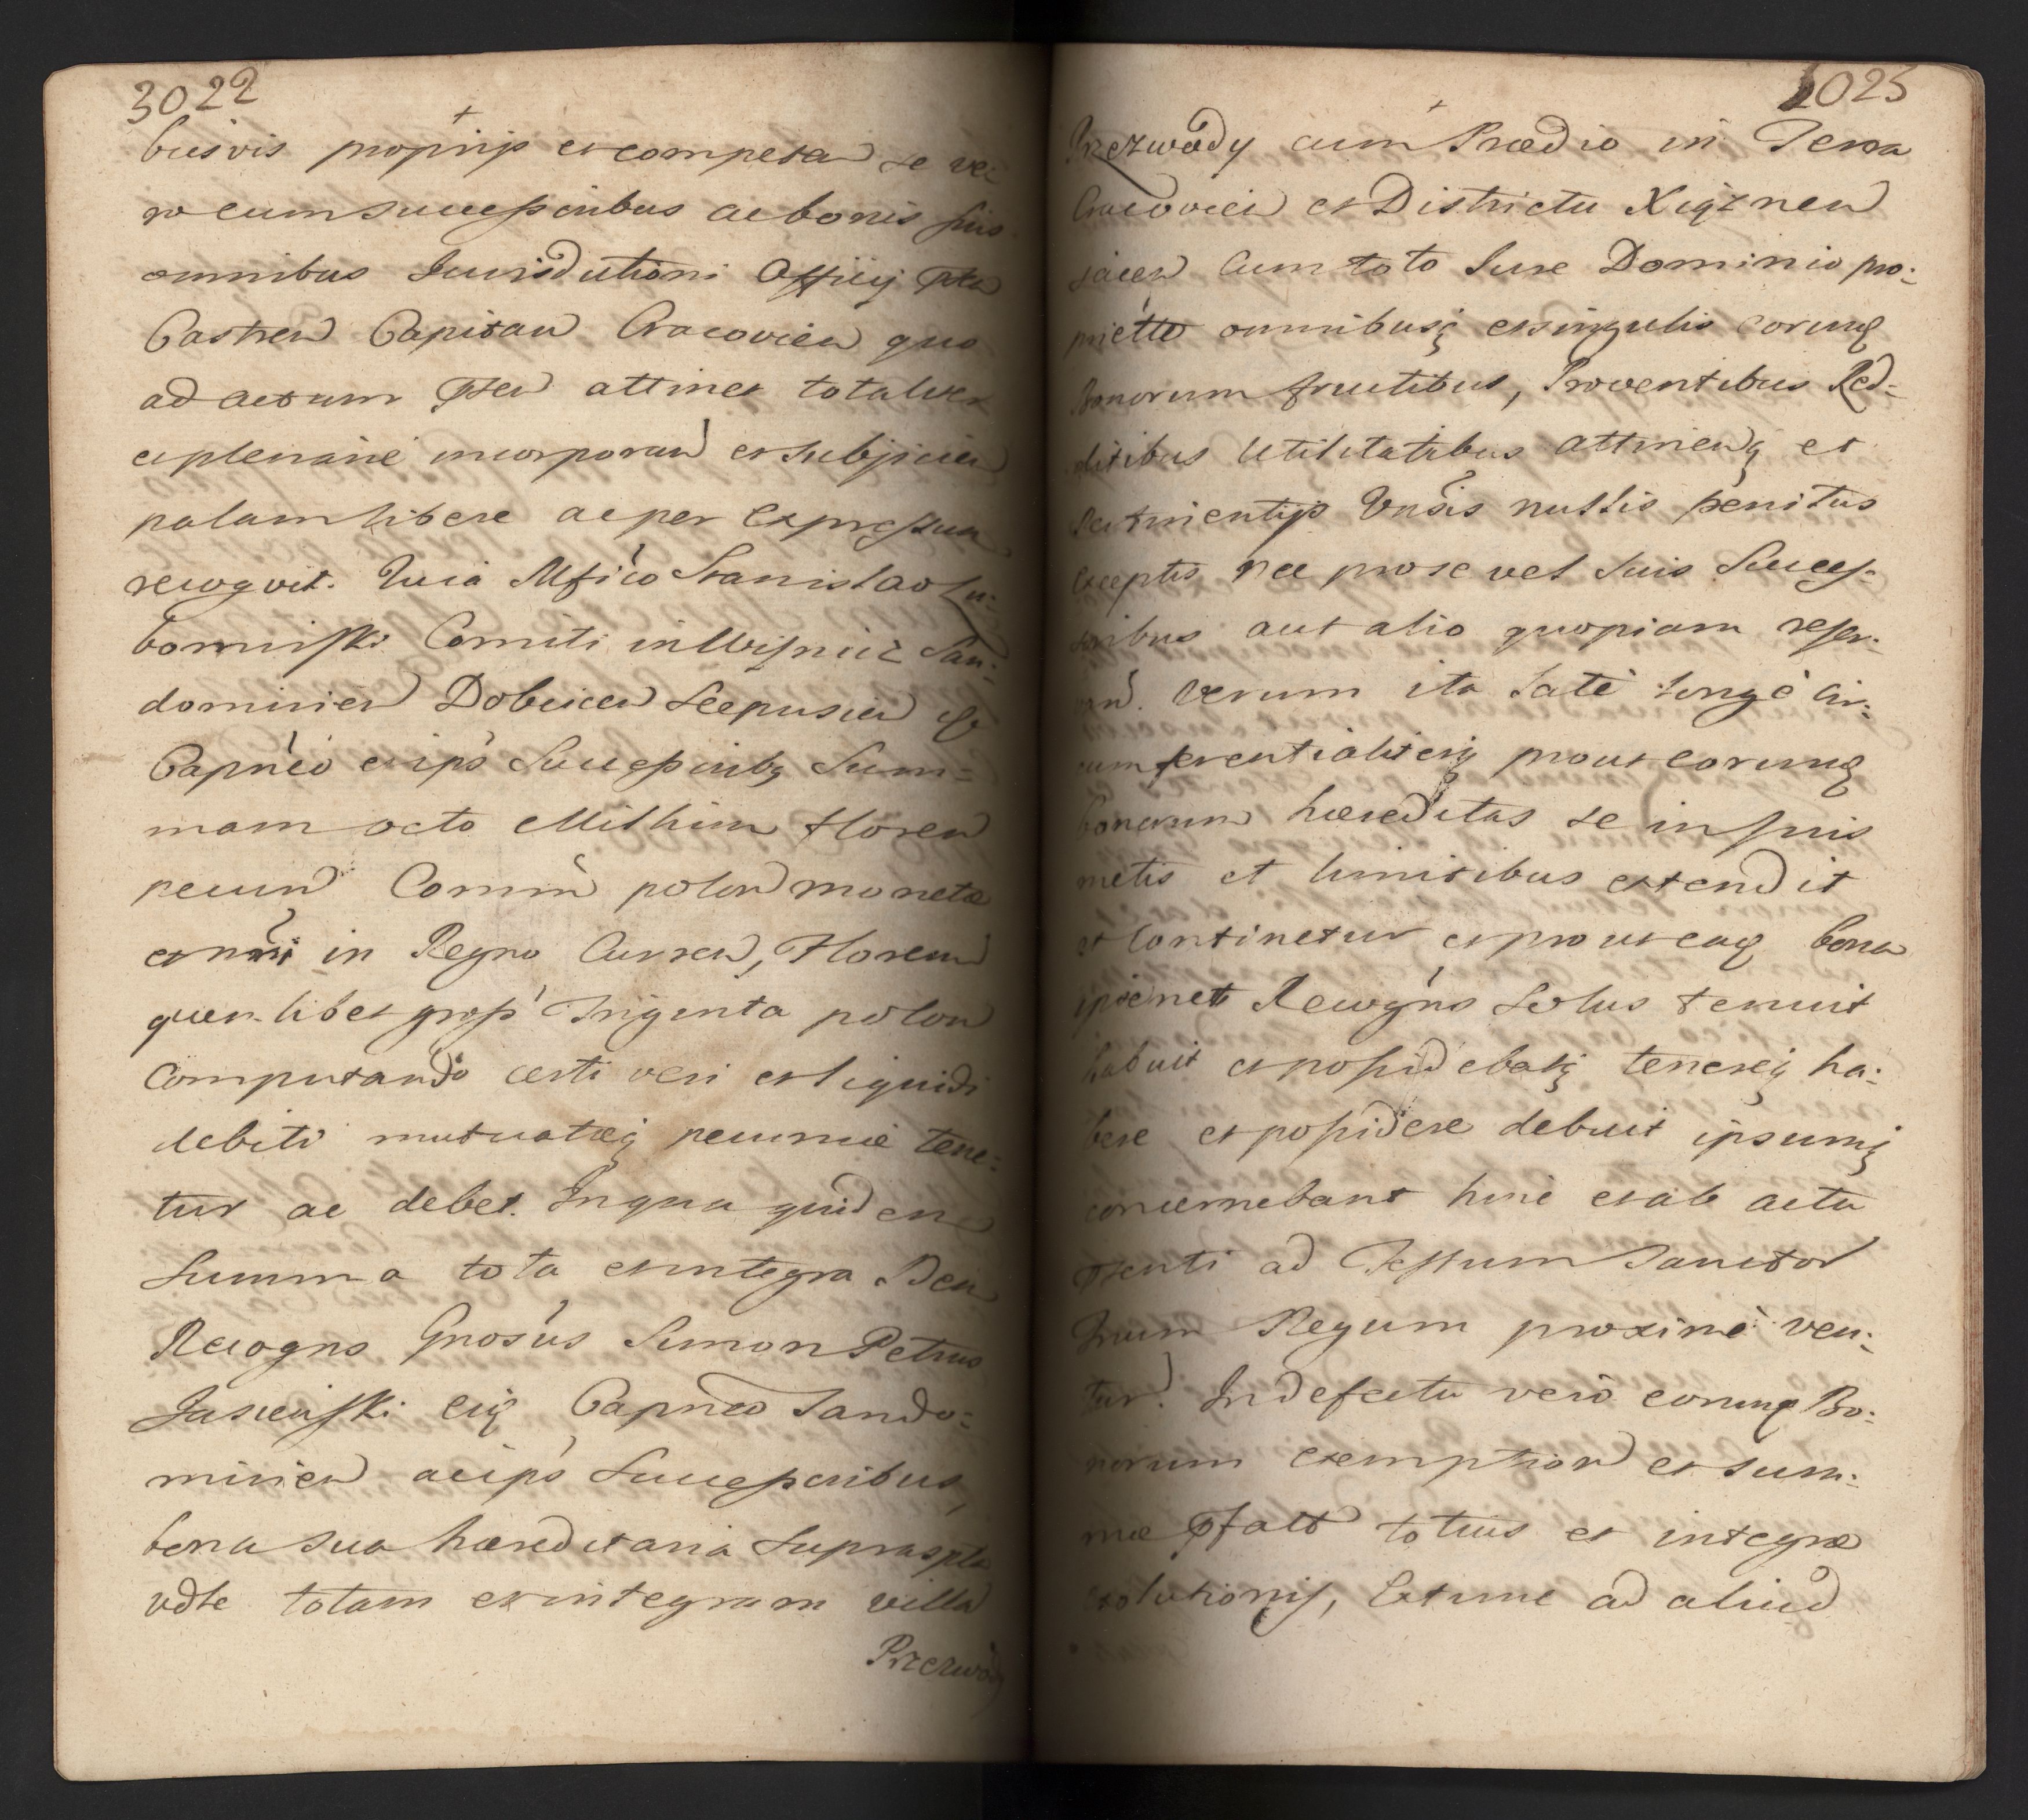 3022
busvis proprijs et competen se ve-
ro cum successoribus ac bonis suis
omnibus Jurisdictioni Officij Pten
Castren Capitan Cracovien quo
ad actum Pten attinet totaliter
ac plenarie incorporan et subijcien
palam libere ac per expressum
recogvit. Quia Mfico Stanislao Lu-
bomirski Comiti in Wisnicz San-
domirien Dobcicen Scepusien
Capneo et ips Successoribq Sum-
mam octo Millium floren
pecun Commu polon monetæ
et nri in Regno Curren, Florenu
quenlibet gross Triginta polon
Computando certi veri et liquidi
debiti mutuatæq pecuniæ tene-
tur ac debet. In qua quidem
Summa tota et integra Idem
Recogns Gnosus Simon Petrus
Jasienski eiq Capneo Sando-
mirien ac ips Successoribus,
bona sua hæreditaria supraspta
vdte totam et integram villa
Przezwody
3023
Przezwody cum Prædio in Terra
Cracovien et Districtu Xiążnen
jacen Cum toto Jure Dominio pro-
priette omnibusq et singulis eorumq
Bonorum fructibus, Proventibus Red-
ditibus Utilitatibus attinenq et
pertinentijs Vnsis nullis penitus
exceptis nec pro se vel suis Succes-
soribus aut alio quopiam reser-
van. Verum ita late longè cir-
cumferentialiterq prout eorumq
bonorum hæreditas se in suis
metis et limitibus extendit
et Continetur et prout eaq bona
ipsemet Recogns Solus tenuit
habuit et possidebatq tenereq ha-
bere et possidere debuit ipsumq
concernebant hinc et ab actu
Pzenti ad Festum Sanctor
Trium Regum proxime ven-
tur. In defectu vero eorumq Bo-
norum exemption et sum-
mæ Pfatæ totius et integræ
exolutionis, Extunc ad aliud